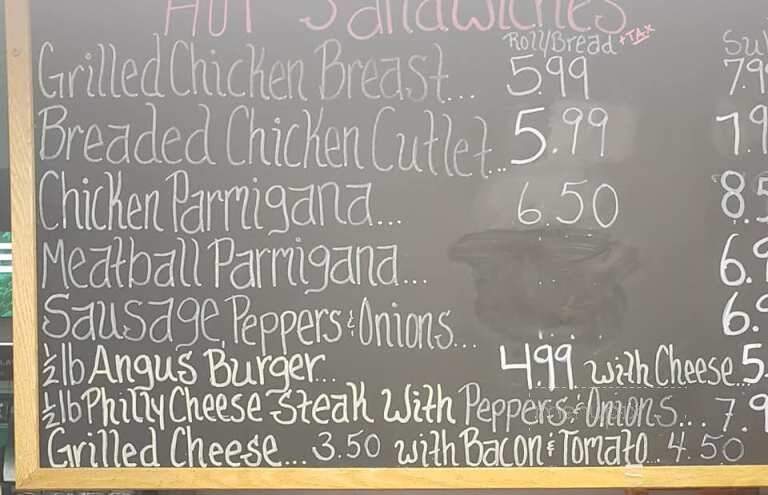 HOT Sandwiches
Roll/Bread +TAX
Grilled Chicken Breast... 5.99 7.9
Breaded Chicken Cutlet... 5.99 7.9
Chicken Parmigana... 6.50 8.5
Meatball Parmigana... 6.9
Sausage, Peppers & Onions... 6.9
1/2 lb Angus Burger... 4.99 with Cheese..5
1/2 lb Philly Cheese Steak With Peppers & Onions... 7.9
Grilled Cheese... 3.50 with Bacon & Tomato.. 4.50